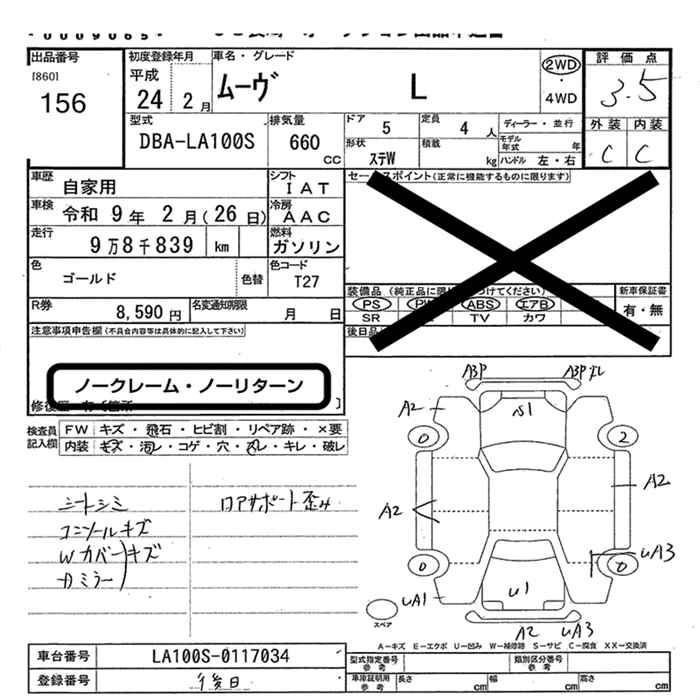 出品番号
[860]
156
初度登録年月
平成
24 2月
車名・グレード
ムーヴ L
2WD
・
4WD
評価点
3.5
外装 内装
C C
型式
DBA-LA100S
排気量
660
CC
ドア
5
定員
4 人
ディーラー・並行
モデル年式 年
形状
ステW
積載
kg
ハンドル 左・右
車歴
自家用
シフト
IAT
車検
令和 9年 2月(26日)
冷房
AAC
走行
9万8千839 km
燃料
ガソリン
色
ゴールド
色替
色コード
T27
R券
8,590円
名変通知期限
月 日
セールスポイント(正常に機能するものに限ります)
装備品
PS PW ABS エアB
SR TV カワ
新車保証書
有・無
後日品
注意事項申告欄(不具合内容等は具体的に記入して下さい)
ノークレーム・ノーリターン
検査員記入欄
FW キズ・飛石・ヒビ割・リペア跡・×要
内装 キズ・汚レ・コゲ・穴・スレ・キレ・破レ
シートシミ
コンソールキズ
Wカバー キズ
カミラー
ロアサポート歪み
A3P
A2
S1
0
2
A2
A2
0
0
UA3
UA1
U1
A2 UA3
スペア
A－キズ E－エクボ U－凹み W－補修跡 S－サビ C－腐食 XX－交換済
車台番号
LA100S-0117034
登録番号
後日
型式指定番号
参考
類別区分番号
参考
車庫証明用
参考
長さ cm
幅 cm
高さ cm